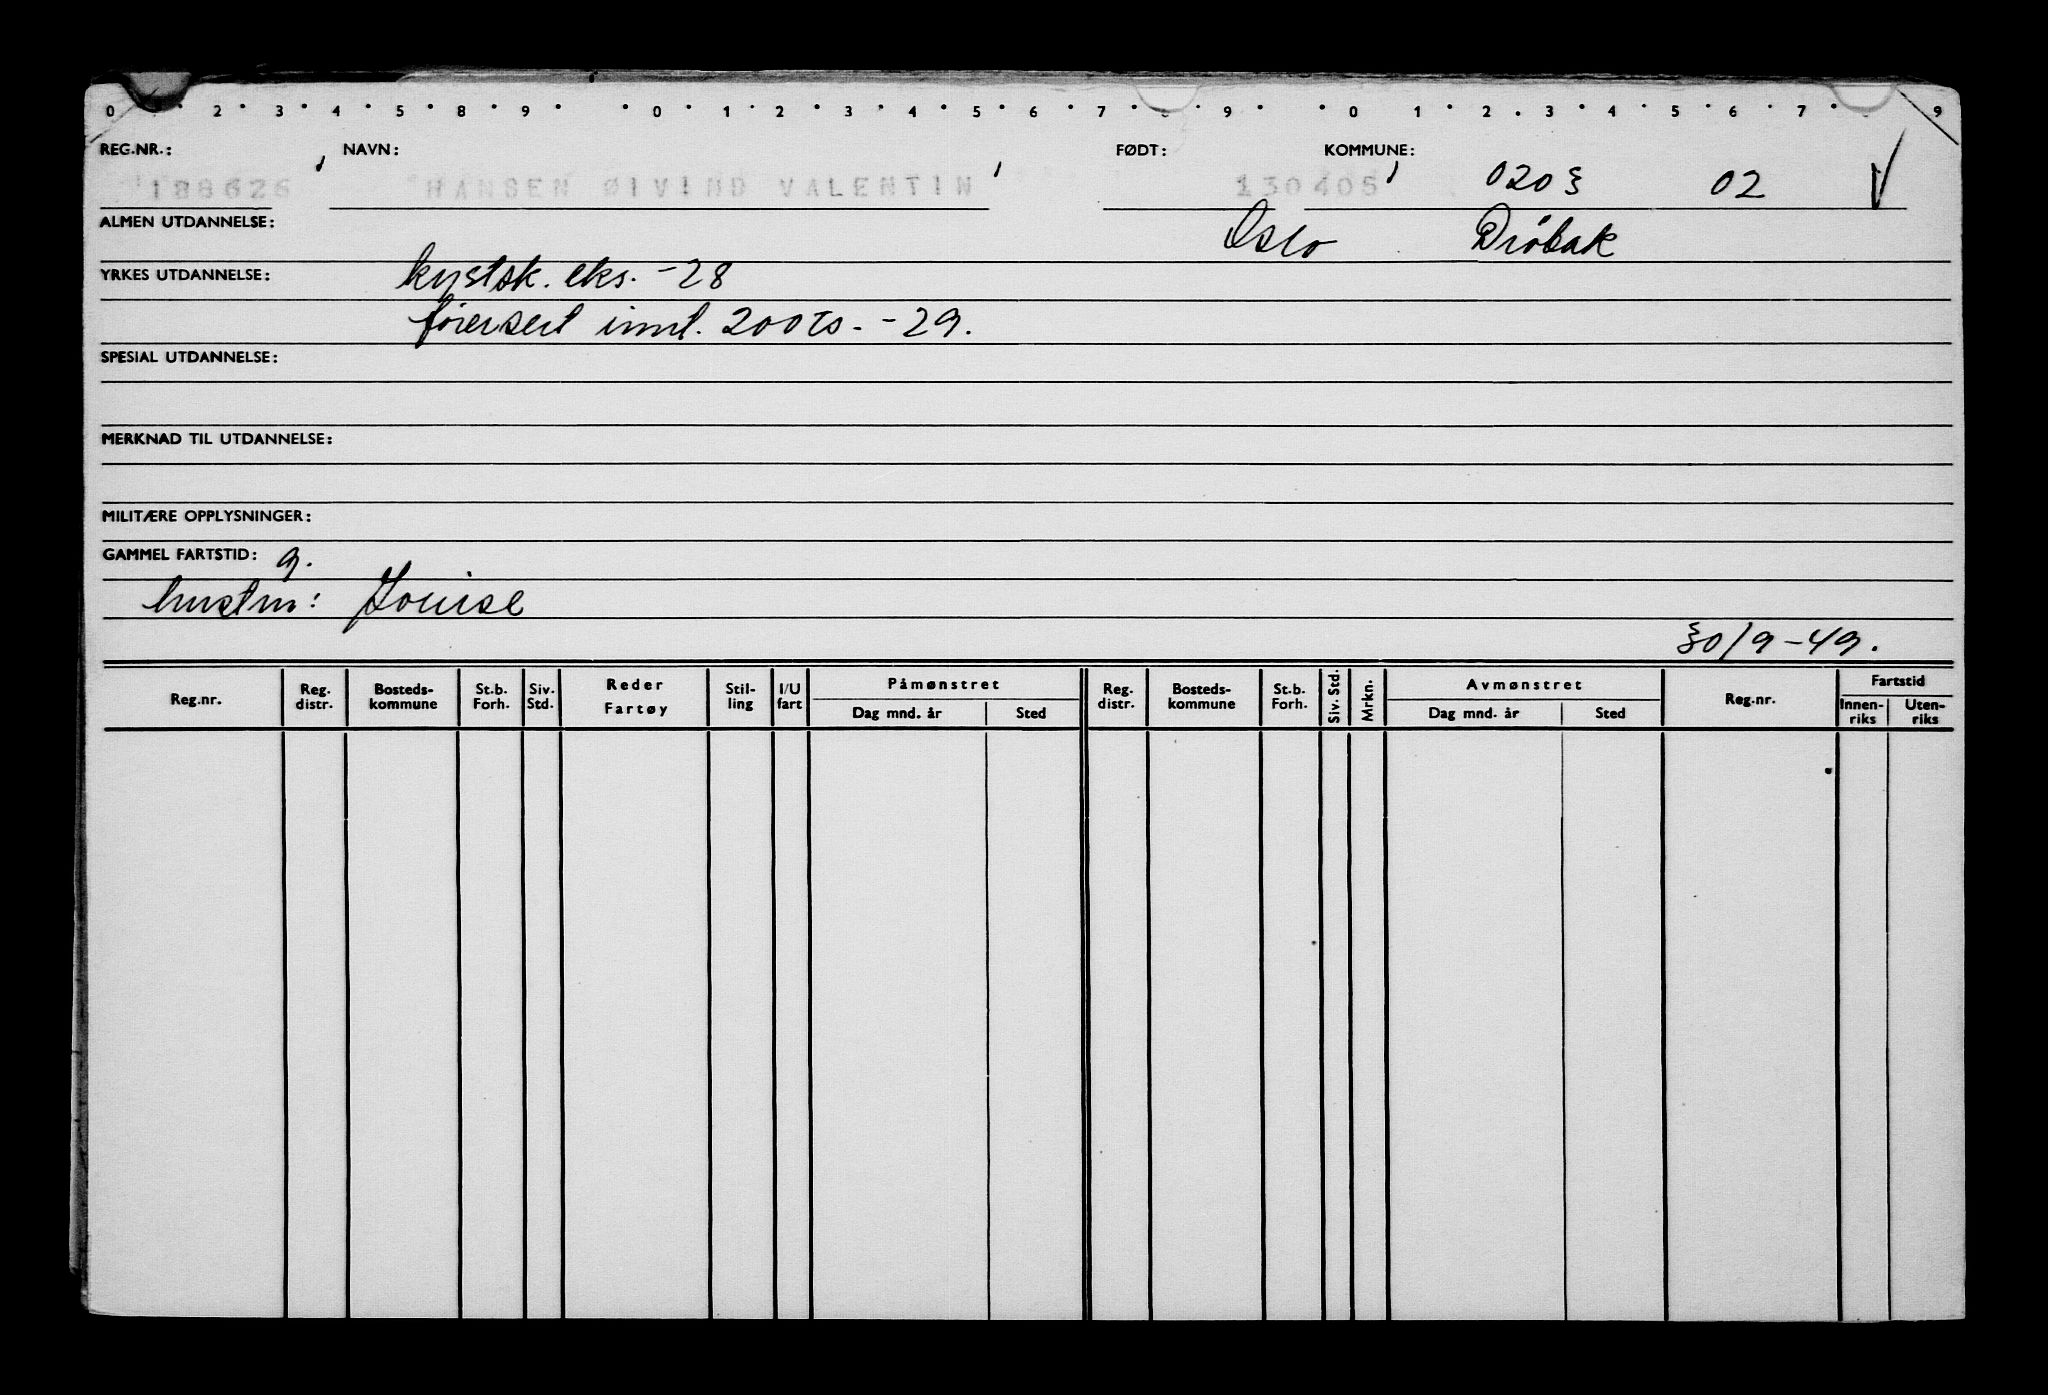 0 2 3 4 5 8 9 0 1 2 3 4 5 6 7 8 9 0 1 2 3 4 5 6 7 9
REG.NR.: NAVN: FØDT: KOMMUNE:
188626 HANSEN ØIVIND VALENTIN 130405 0203 02
ALMEN UTDANNELSE: Oslo Drøbak
YRKES UTDANNELSE: kystsk. eks. -28
førersert innt. 200 ts. -29.
SPESIAL UTDANNELSE:
MERKNAD TIL UTDANNELSE:
MILITÆRE OPPLYSNINGER:
GAMMEL FARTSTID: g.
hustru: Louise
30/9-49.
Reg.nr. Reg. distr. Bosteds-kommune St.b. Forh. Siv. Std. Reder Fartøy Stil-ling I/U fart Påmønstret Dag mnd. år Sted Reg. distr. Bosteds-kommune St.b. Forh. Siv. Std. Mrkn. Avmønstret Dag mnd. år Sted Reg.nr. Fartstid Innen-riks Uten-riks